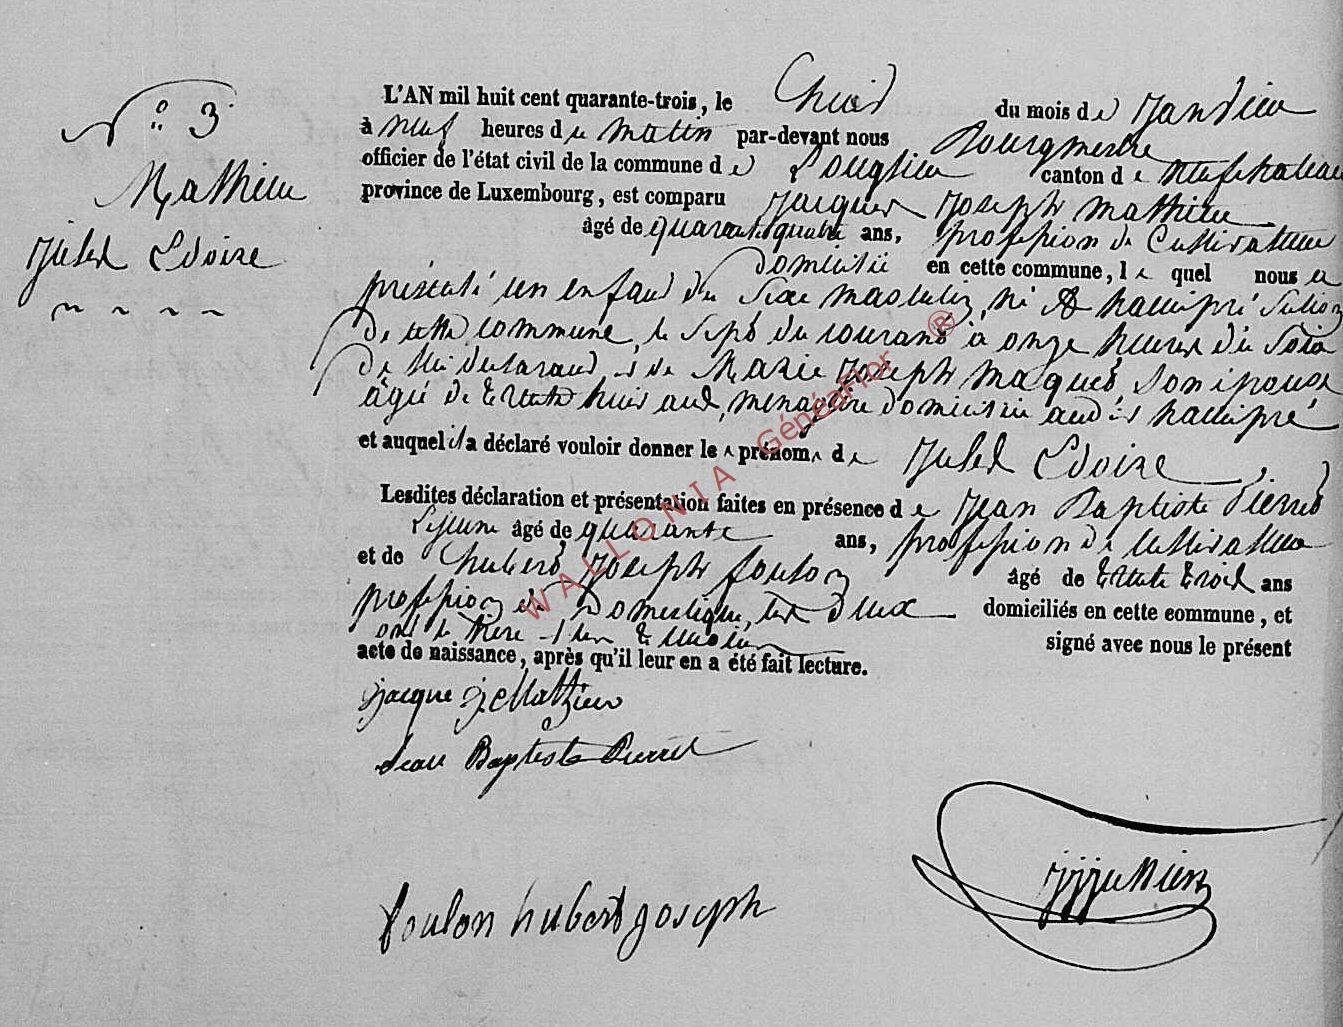 N° 3
Mathieu
Jules Edoire
L'AN mil huit cent quarante-trois, le huit du mois de Janvier
à neuf heures du matin par-devant nous Bourgmestre
officier de l'état civil de la commune de Longlier canton de Neufchateau
province de Luxembourg, est comparu Jacques Joseph Mathieu
âgé de quarante quatre ans, profession de Cultivateur
domicilié en cette commune, le quel nous a
présenté un enfant du sexe masculin, né à hamipré section
de cette commune, le sept du courant à onze heures du soir
de lui déclarant, et de Marie Joseph Maquet, son épouse
âgée de trente huit ans, ménagère domiciliée audit hamipré
et auquel il a déclaré vouloir donner les prénoms de Jules Edoire
Lesdites déclaration et présentation faites en présence de Jean Baptiste Pierret
Lejeune âgé de quarante ans, profession de cultivateur
et de hubert Joseph foulon âgé de trente trois ans
profession de Domestique, les deux domiciliés en cette commune, et
ont le Père et les témoins signé avec nous le présent
acte de naissance, après qu'il leur en a été fait lecture.
jacque j Mathieu
Jean Baptiste Pierret
foulon hubert joseph
WALLONIA GénéaFlor ®